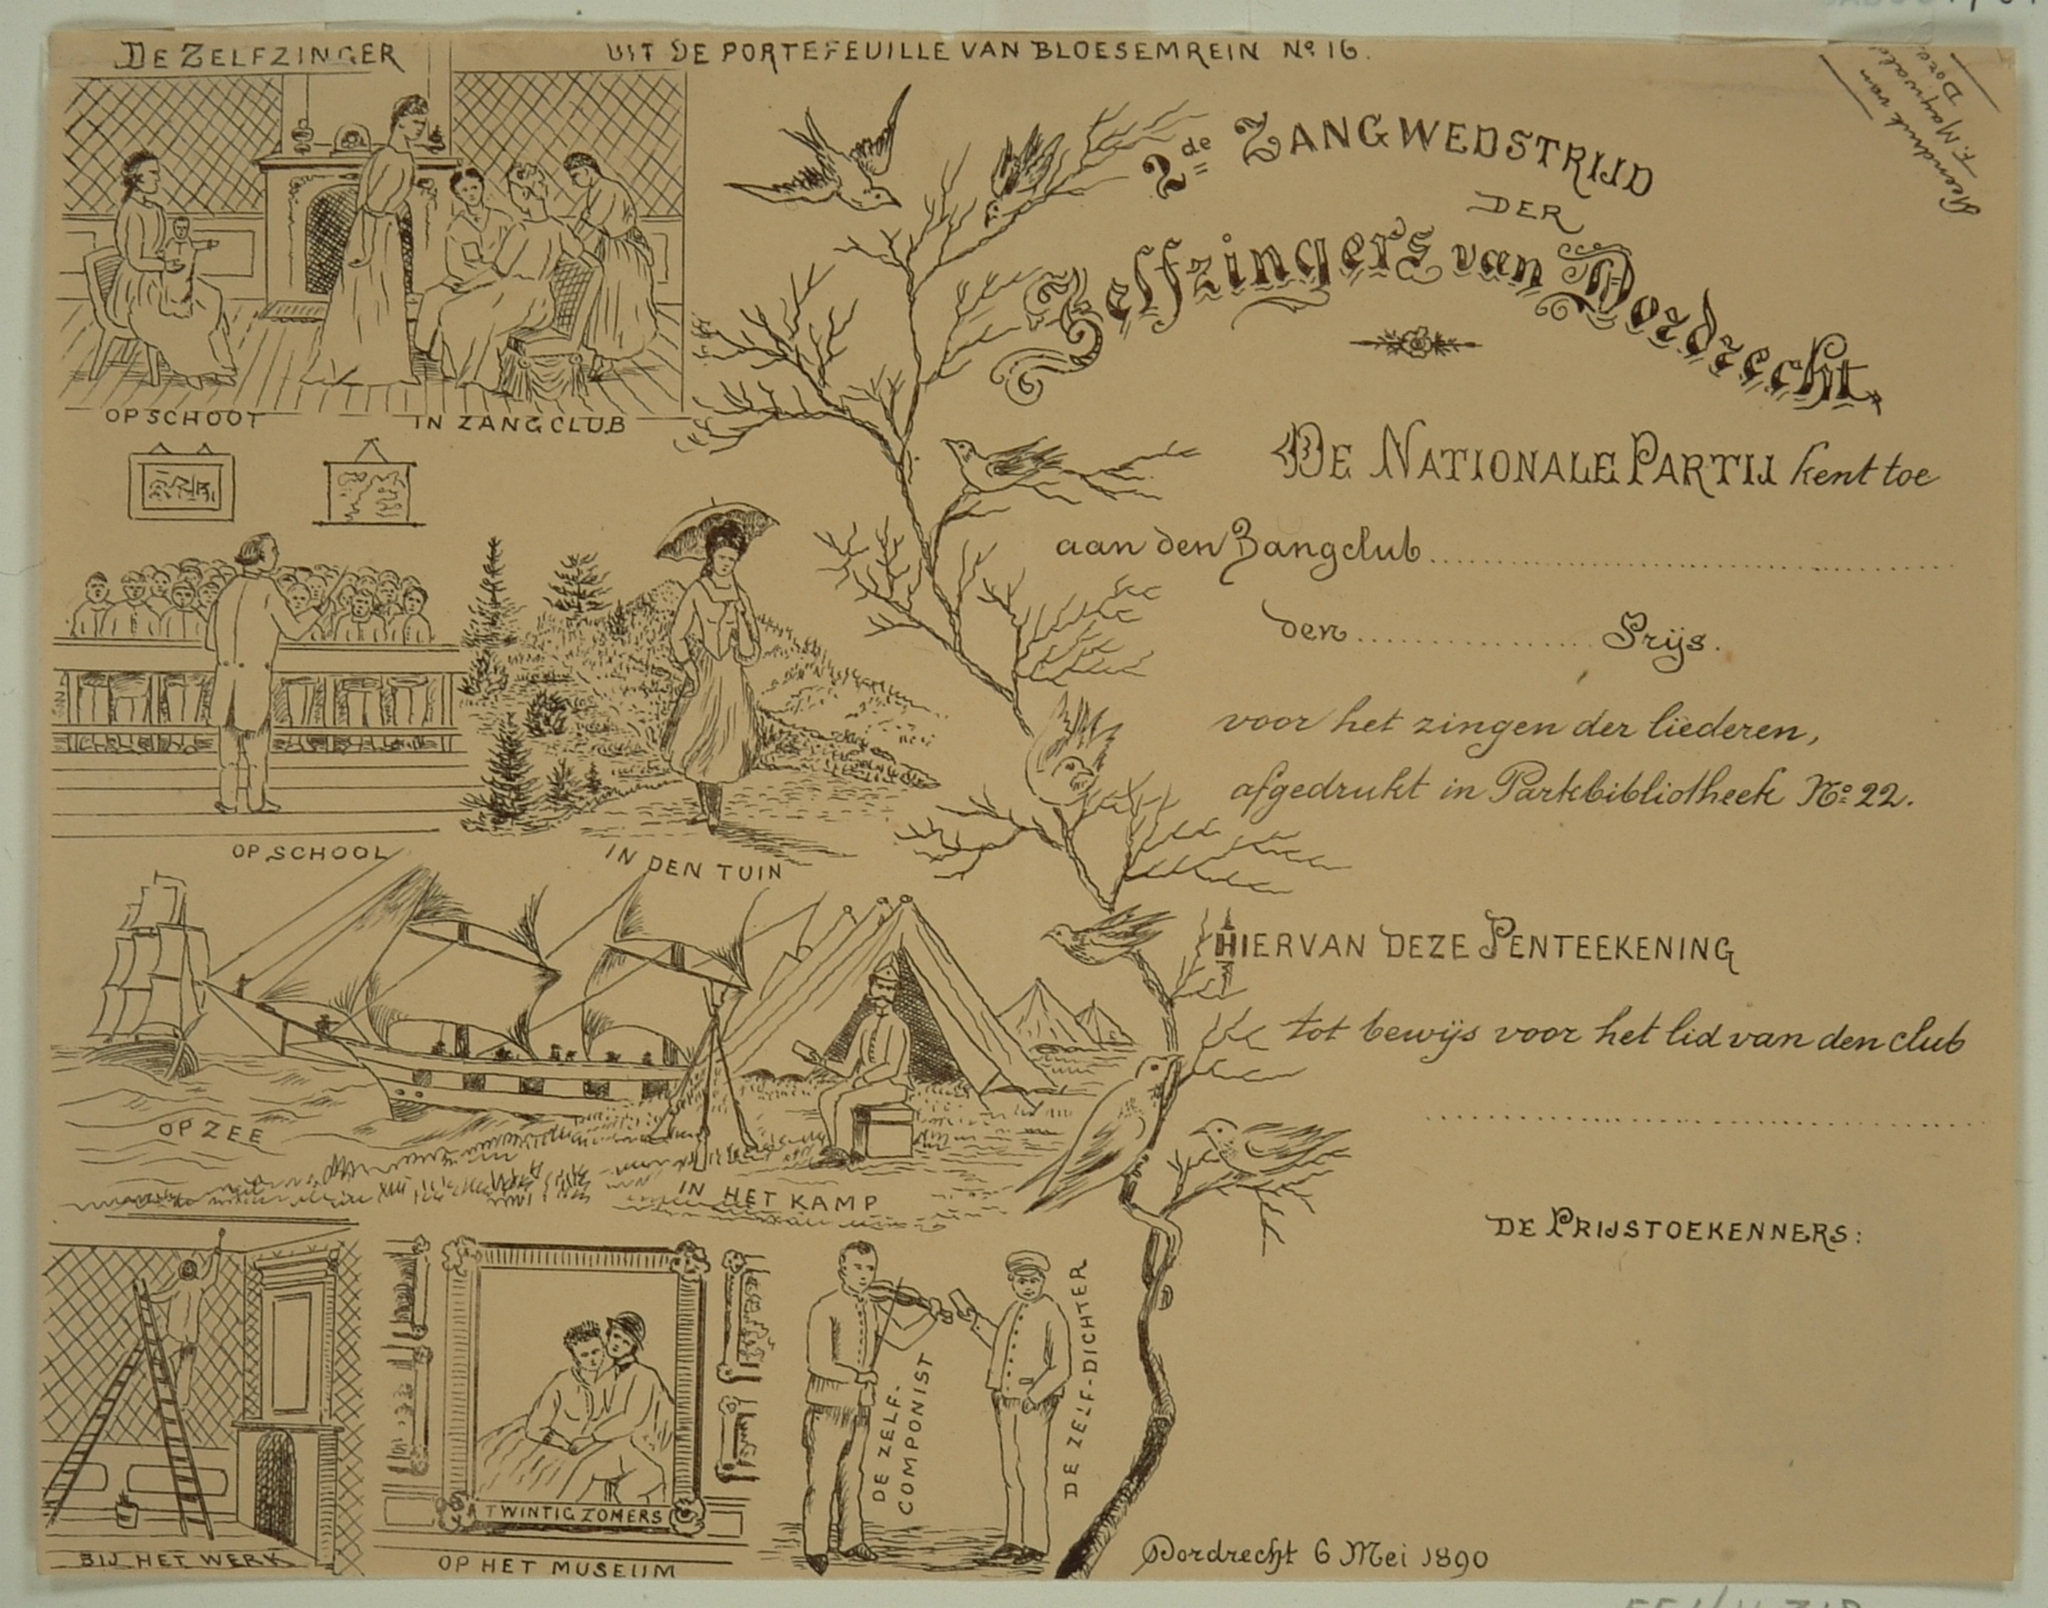 DE ZELFZINGER
UIT DE PORTEFEUILLE VAN BLOESEMREIN No 16.
Steendruk van
Dordt
2de ZANGWEDSTRIJD
DER
Zelfzingers van Dordrecht.
DE NATIONALE PARTIJ kent toe
aan den Zangclub
den Prijs.
voor het zingen der liederen,
afgedrukt in Parkbibliotheek No 22.
HIERVAN DEZE PENTEEKENING
tot bewijs voor het lid van den club
DE PRIJSTOEKENNERS:
Dordrecht 6 Mei 1890
OP SCHOOT
IN ZANGCLUB
OP SCHOOL
IN DEN TUIN
OP ZEE
IN HET KAMP
BIJ HET WERK
TWINTIG ZOMERS
OP HET MUSEUM
DE ZELF-
COMPONIST
DE ZELF-DICHTER